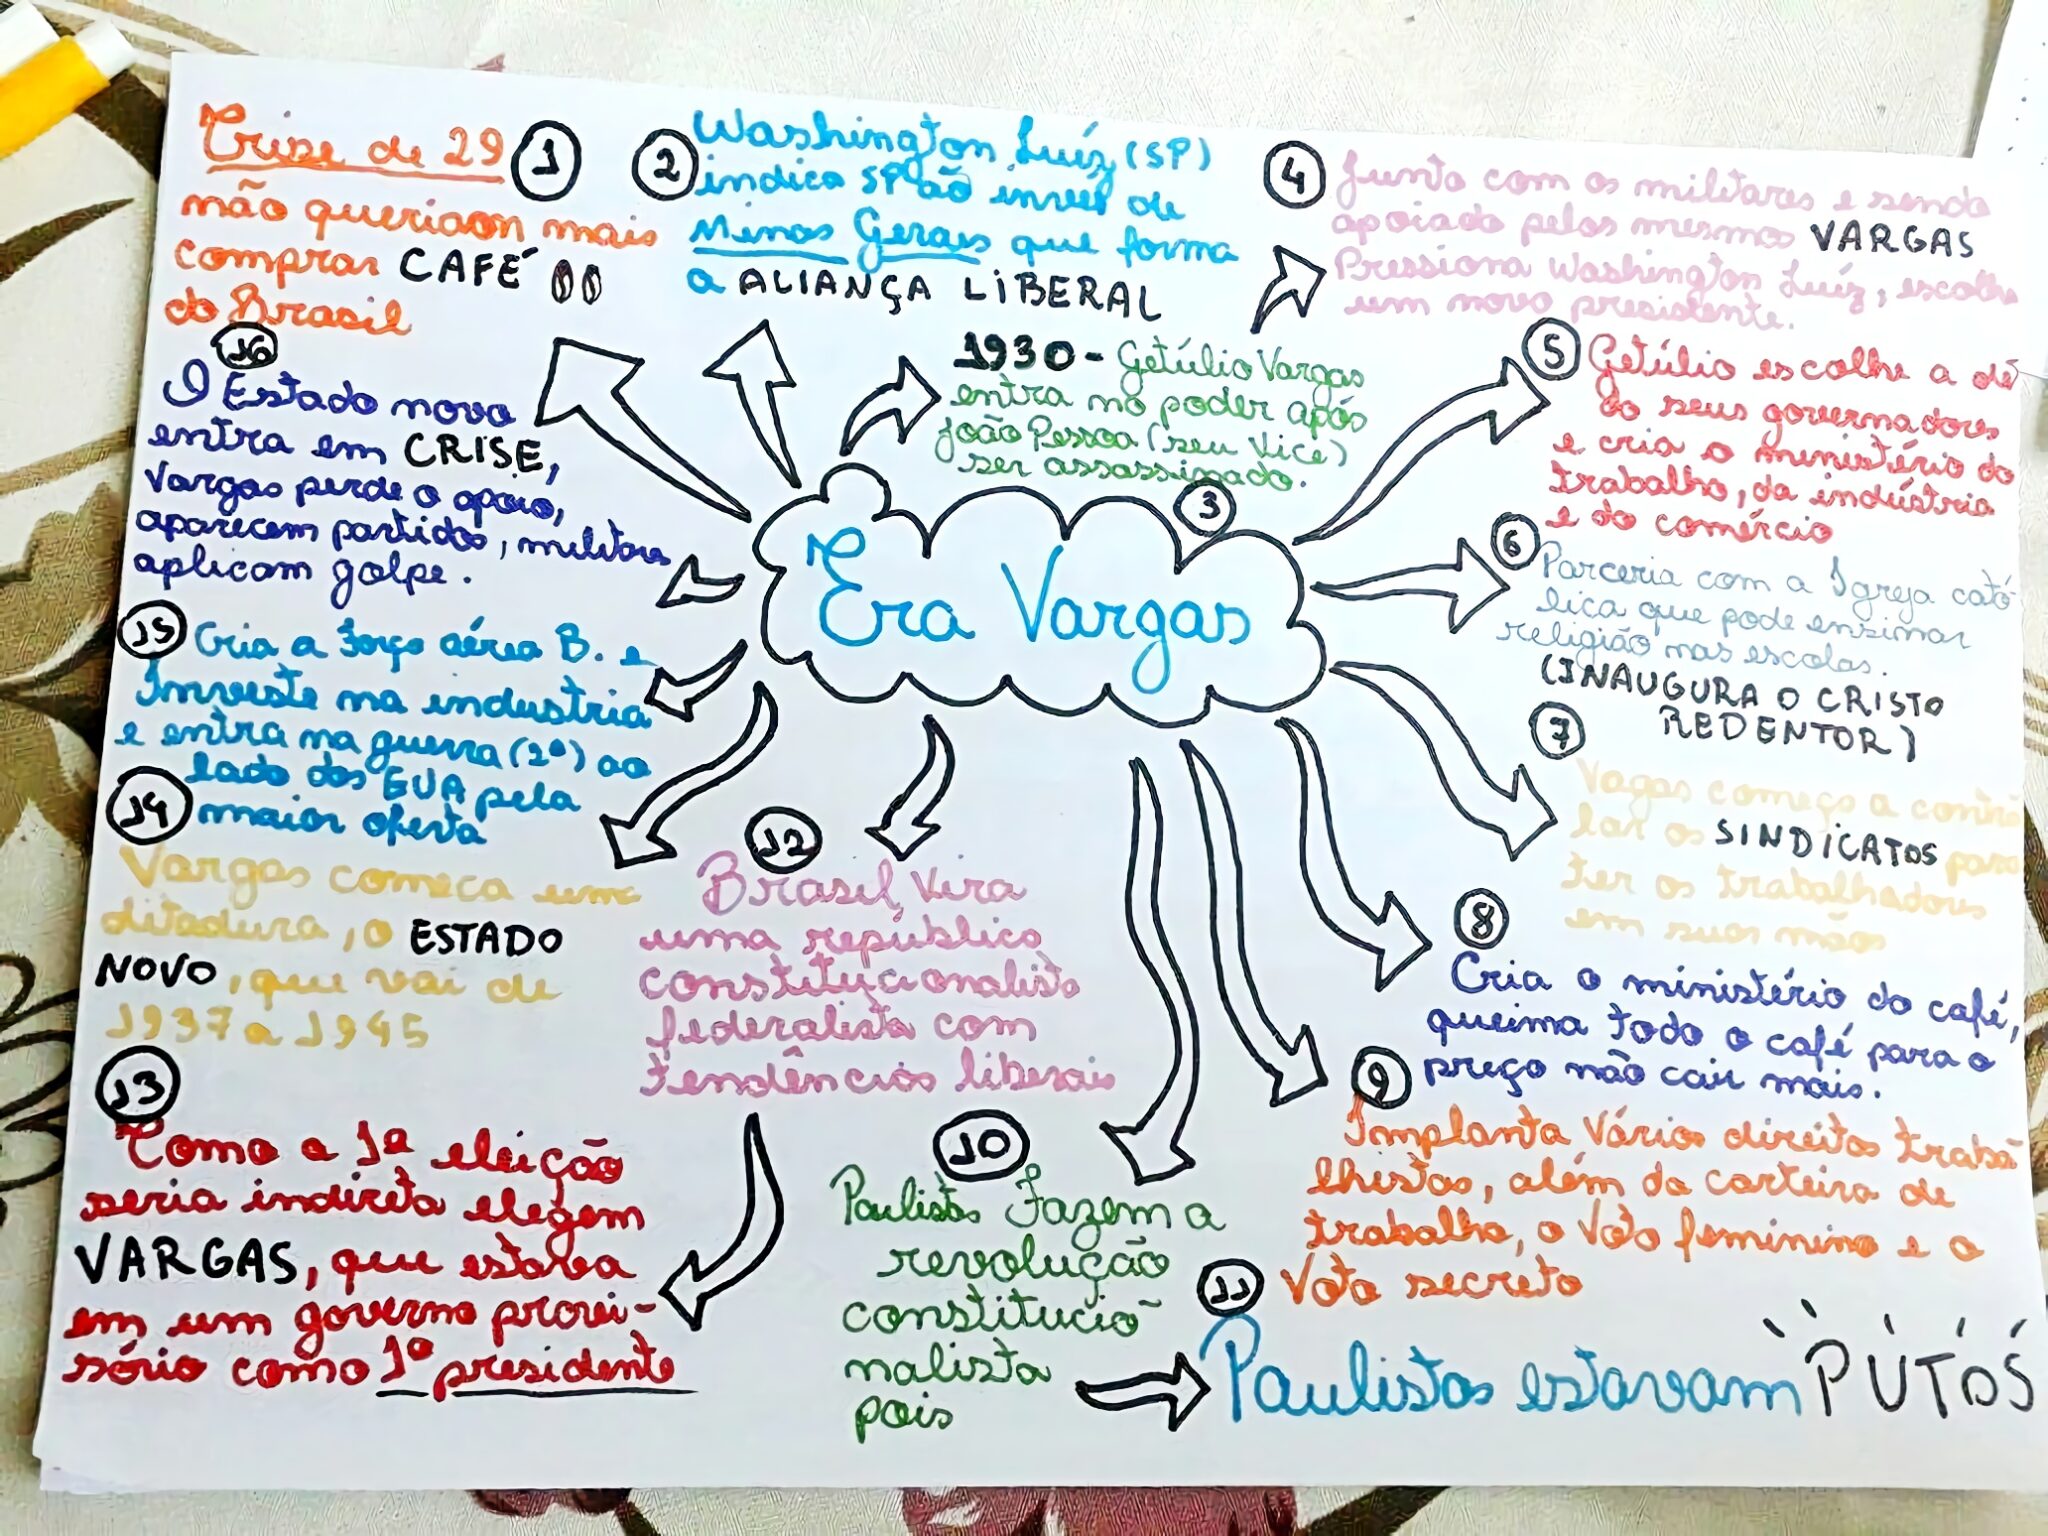 Era Vargas
1
Crise de 29
não queriam mais
comprar CAFÉ
do Brasil
2
Washington Luíz (SP)
indica SP ao invés de
Minas Gerais que forma
a ALIANÇA LIBERAL
1930 - Getúlio Vargas
entra no poder após
João Pessoa (seu vice)
ser assassinado.
3
4
Junto com os militares e sendo
apoiado pelos mesmos VARGAS
Pressiona Washington Luíz, escolhe
um novo presidente.
5
Getúlio escolhe a dê
do seus governadores
e cria o ministério do
trabalho, da indústria
e do comércio
6
Parceria com a Igreja cató
lica que pode ensinar
religião nas escolas.
(INAUGURA O CRISTO
REDENTOR)
7
Vagas começa a contro
lar os SINDICATOS para
ter os trabalhadores
em suas mãos
8
Cria o ministério do café,
queima todo o café para o
preço não cair mais.
9
Implanta vários direitos traba
lhistas, além da carteira de
trabalho, o voto feminino e o
voto secreto
10
Paulistas fazem a
revolução
constitucio
nalista
pois
11
Paulistas estavam PUTOS
12
Brasil vira
uma república
constitucionalista
federalista com
tendências liberais
13
Como a 1ª eleição
seria indireta elegem
VARGAS, que estava
em um governo provi-
sório como 1º presidente
14
Vargas começa uma
ditadura, o ESTADO
NOVO, que vai de
1937 a 1945
15
Cria a força aérea B. e
Investe na industria
e entra na guerra (2ª) ao
lado dos EUA pela
maior oferta
16
O Estado novo
entra em CRISE,
Vargas perde o apoio,
aparecem partidos, militares
aplicam golpe.